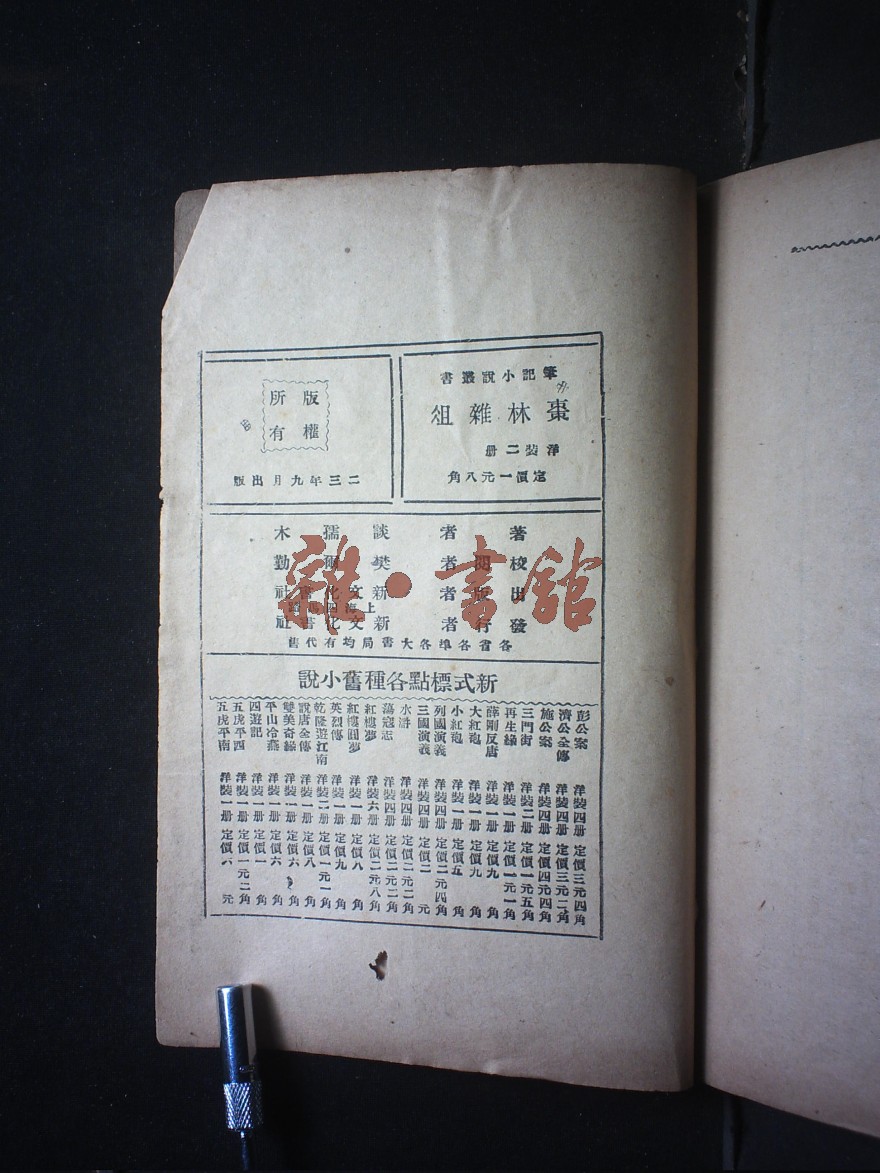 筆記小說叢書
棗林雜俎
洋裝二册
定價一元八角
版權
所有
二三年九月出版
著者 談孺木
校閱者 樊爾勤
出版者 新文化書社
上海四馬路
發行者 新文化書社
各省各埠各大書局均有代售
新式標點各種舊小說
彭公案 洋裝四册 定價三元四角
濟公全傳 洋裝四册 定價三元二角
施公案 洋裝四册 定價四元四角
三門街 洋裝二册 定價一元五角
再生緣 洋裝一册 定價一元一角
薛剛反唐 洋裝一册 定價九角
大紅袍 洋裝一册 定價九角
小紅袍 洋裝一册 定價五角
列國演義 洋裝四册 定價二元四角
三國演義 洋裝四册 定價二元
水滸 洋裝四册 定價二元二角
蕩寇志 洋裝四册 定價二元二角
紅樓夢 洋裝六册 定價二元八角
紅樓圓夢 洋裝一册 定價八角
英烈傳 洋裝一册 定價九角
乾隆遊江南 洋裝二册 定價一元一角
說唐全傳 洋裝一册 定價八角
雙美奇緣 洋裝一册 定價六角
平山冷燕 洋裝一册 定價六角
四遊記 洋裝一册 定價一角
五虎平西 洋裝一册 定價一元二角
五虎平南 洋裝一册 定價六元
雜·書館